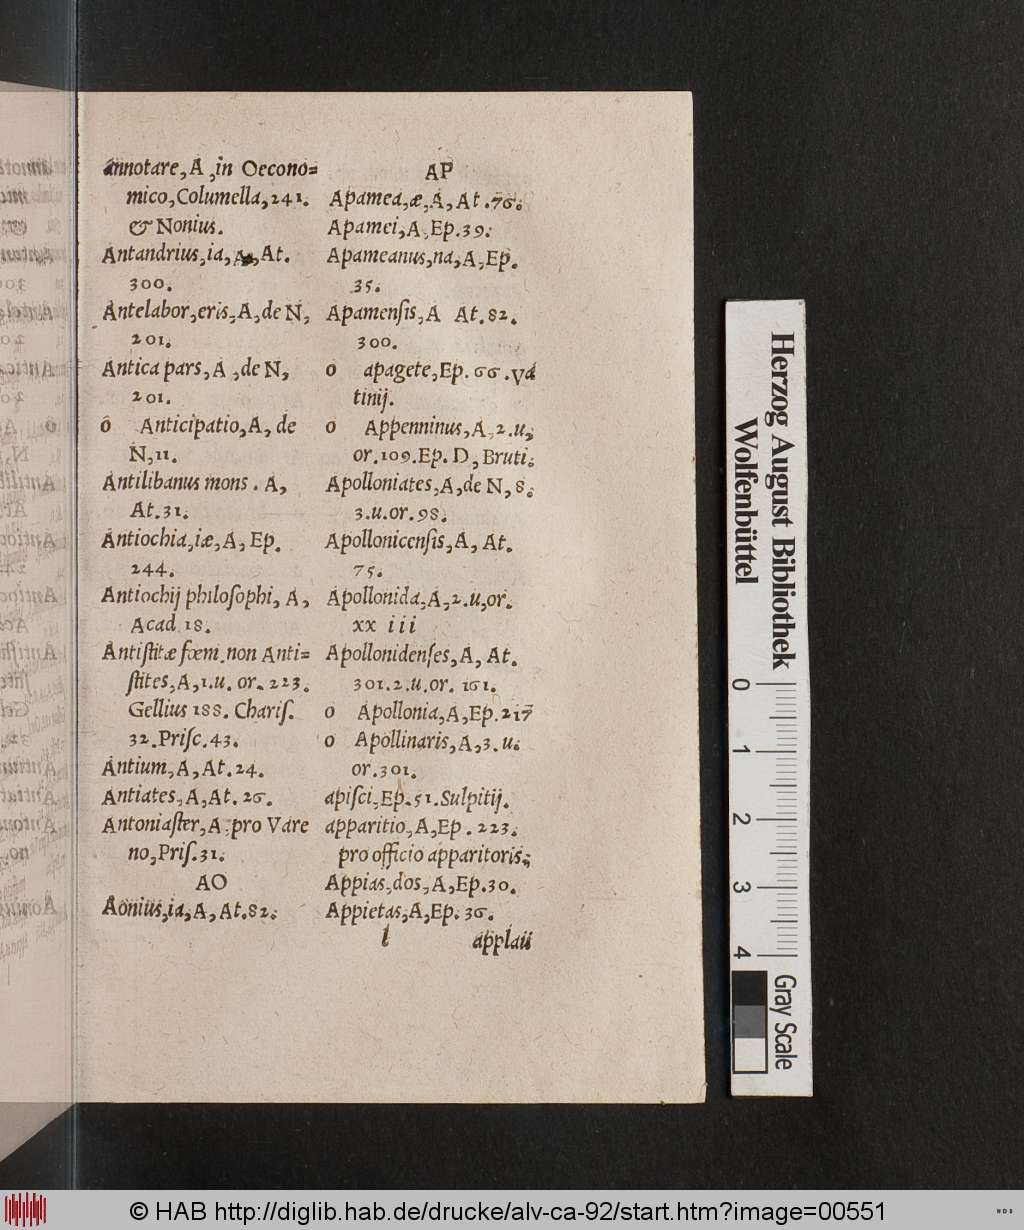 annotare, A, in Oecono=
mico, Columella, 241.
& Nonius.
Antandrius, ia, A, At.
300.
Antelabor, eris, A, de N,
201.
Antica pars, A, de N,
201.
ô Anticipatio, A, de
N, 11.
Antilibanus mons. A,
At. 31.
Antiochia, iæ, A, Ep.
244.
Antiochij philoſophi, A,
Acad 18.
Antiſtitæ fœm. non Anti=
ſtites, A, 1. u. or. 223.
Gellius 188. Chariſ.
32. Priſc. 43.
Antium, A, At. 24.
Antiates, A, At. 26.
Antoniaſter, A, pro Vare
no, Priſ. 31.
AO
Aönius, ia, A, At. 82.
AP
Apamea, æ, A, At. 76.
Apamei, A, Ep. 39.
Apameanus, na, A, Ep.
35.
Apamenſis, A At. 82.
300.
o apagete, Ep. 66. Va
tinij.
o Appenninus, A, 2. u,
or. 109. Ep. D, Bruti.
Apolloniates, A, de N, 8.
3. u. or. 98.
Apollonicenſis, A, At.
75.
Apollonida, A, 2. u, or.
xx iii
Apollonidenſes, A, At.
301. 2. u. or. 161.
o Apollonia, A, Ep. 217
o Apollinaris, A, 3. u.
or. 301.
apiſci, Ep. 51. Sulpitij.
apparitio, A, Ep. 223.
pro officio apparitoris,
Appias, dos, A, Ep. 30.
Appietas, A, Ep. 36.
l applau
Herzog August Bibliothek
Wolfenbüttel
0 1 2 3 4
Gray Scale
© HAB http://diglib.hab.de/drucke/alv-ca-92/start.htm?image=00551